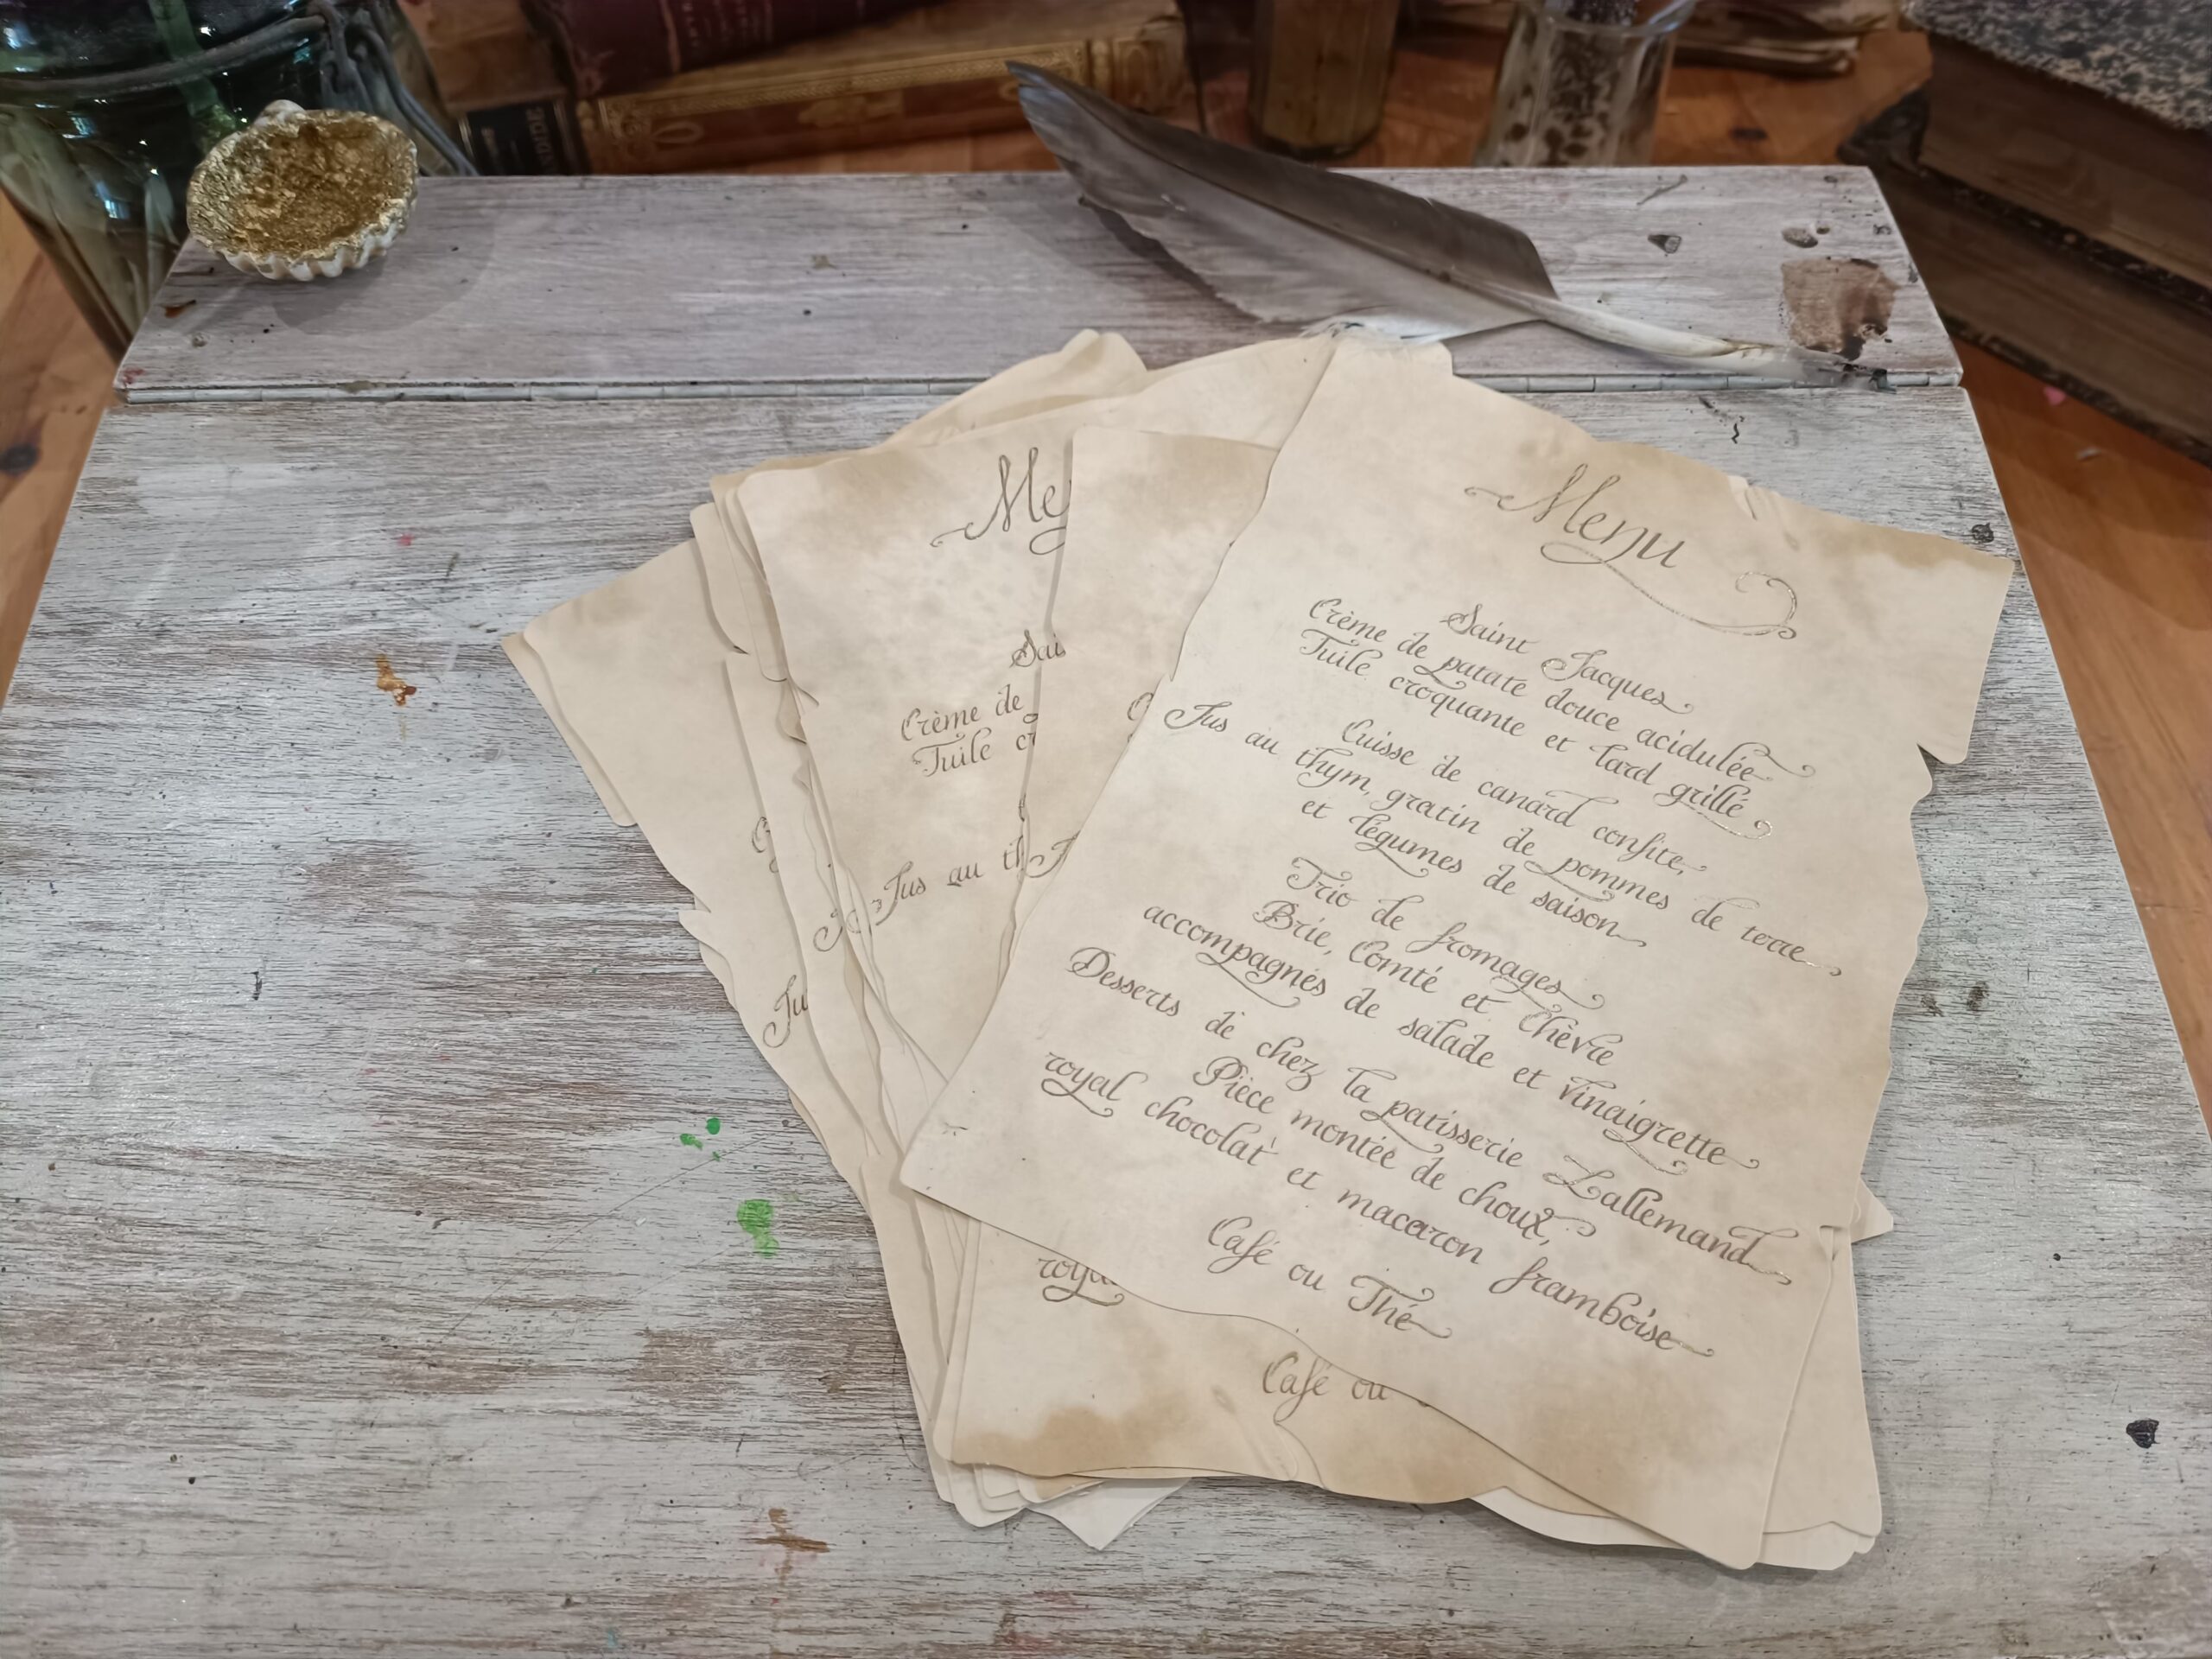 Menu
Saint Jacques
Crème de patate douce acidulée
Tuile croquante et lard grillé
Cuisse de canard confite,
Jus au thym, gratin de pommes de terre
et légumes de saison
Trio de fromages
Brie, Comté et Chèvre
accompagnés de salade et vinaigrette
Desserts de chez la patisserie Lallemand
Pièce montée de choux,
royal chocolat et macaron framboise
Café ou Thé
Me
Sai
Crème de
Tuile cr
Jus au th
Ju
roya
Café ou